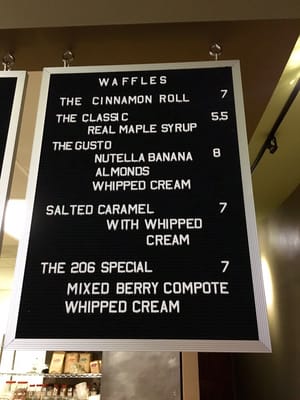 WAFFLES
THE CINNAMON ROLL 7
THE CLASSIC 5.5
REAL MAPLE SYRUP
THE GUSTO
NUTELLA BANANA 8
ALMONDS
WHIPPED CREAM
SALTED CARAMEL 7
WITH WHIPPED
CREAM
THE 206 SPECIAL 7
MIXED BERRY COMPOTE
WHIPPED CREAM